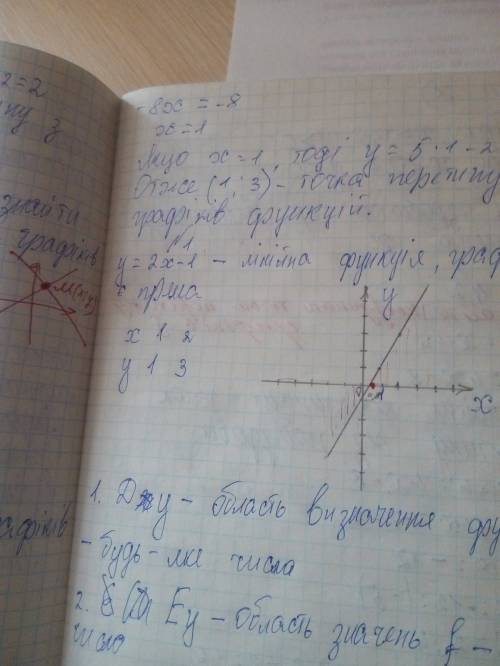 2=2
з
знайти
графіків
M(x;y)
-8x = -8
x=1
Якщо x=1, тоді y = 5·1-2
Отже (1; 3) - точка перетину
графіків функцій.
y=2x-1 - лінійна функція, граф
пряма
x 1 2
y 1 3
y
x
1. Dy - область визначення фу
- будь-яке число
2. Ey - область значень f -
число